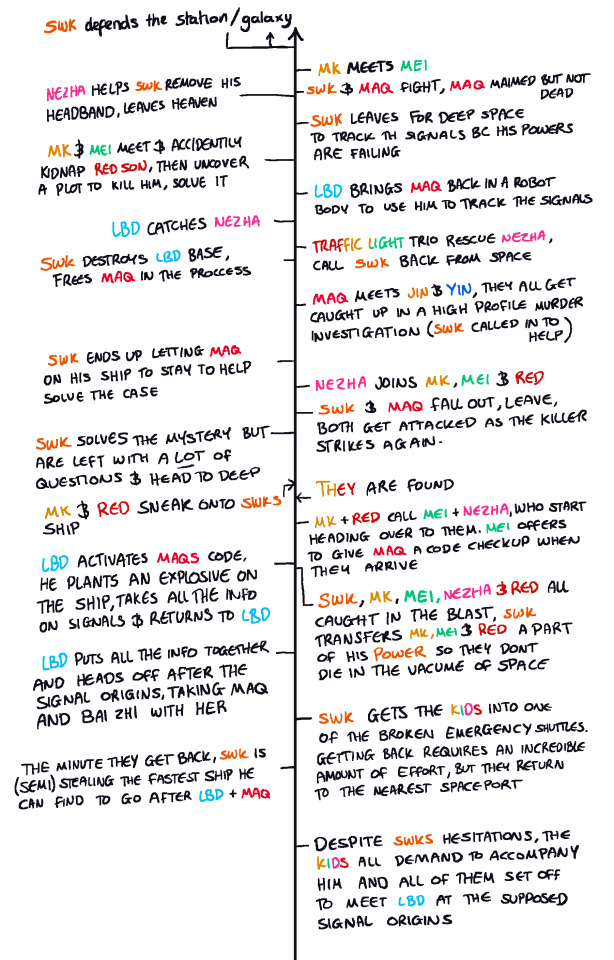 SWK defends the station/galaxy
MK MEETS MEI
SWK & MAQ FIGHT, MAQ MAIMED BUT NOT
DEAD
NEZHA HELPS SWK REMOVE HIS
HEADBAND, LEAVES HEAVEN
SWK LEAVES FOR DEEP SPACE
TO TRACK TH SIGNALS BC HIS POWERS
ARE FAILING
MK & MEI MEET & ACCIDENTLY
KIDNAP RED SON, THEN UNCOVER
A PLOT TO KILL HIM, SOLVE IT
LBD BRINGS MAQ BACK IN A ROBOT
BODY TO USE HIM TO TRACK THE SIGNALS
LBD CATCHES NEZHA
TRAFFIC LIGHT TRIO RESCUE NEZHA,
CALL SWK BACK FROM SPACE
SWK DESTROYS LBD BASE,
FREES MAQ IN THE PROCCESS
MAQ MEETS JIN & YIN, THEY ALL GET
CAUGHT UP IN A HIGH PROFILE MURDER
INVESTIGATION (SWK CALLED IN TO
HELP)
SWK ENDS UP LETTING MAQ
ON HIS SHIP TO STAY TO HELP
SOLVE THE CASE
NEZHA JOINS MK, MEI & RED
SWK & MAQ FALL OUT, LEAVE,
BOTH GET ATTACKED AS THE KILLER
STRIKES AGAIN.
SWK SOLVES THE MYSTERY BUT
ARE LEFT WITH A LOT OF
QUESTIONS & HEAD TO DEEP
MK & RED SNEAK ONTO SWKS
SHIP
THEY ARE FOUND
MK + RED CALL MEI + NEZHA, WHO START
HEADING OVER TO THEM. MEI OFFERS
TO GIVE MAQ A CODE CHECKUP WHEN
THEY ARRIVE
LBD ACTIVATES MAQS CODE,
HE PLANTS AN EXPLOSIVE ON
THE SHIP, TAKES ALL THE INFO
ON SIGNALS & RETURNS TO LBD
SWK, MK, MEI, NEZHA & RED ALL
CAUGHT IN THE BLAST, SWK
TRANSFERS MK, MEI & RED A PART
OF HIS POWER SO THEY DONT
DIE IN THE VACUME OF SPACE
LBD PUTS ALL THE INFO TOGETHER
AND HEADS OFF AFTER THE
SIGNAL ORIGINS, TAKING MAQ
AND BAI ZHI WITH HER
SWK GETS THE KIDS INTO ONE
OF THE BROKEN EMERGENCY SHUTTLES.
GETTING BACK REQUIRES AN INCREDIBLE
AMOUNT OF EFFORT, BUT THEY RETURN
TO THE NEAREST SPACEPORT
THE MINUTE THEY GET BACK, SWK IS
(SEMI) STEALING THE FASTEST SHIP HE
CAN FIND TO GO AFTER LBD + MAQ
DESPITE SWKS HESITATIONS, THE
KIDS ALL DEMAND TO ACCOMPANY
HIM AND ALL OF THEM SET OFF
TO MEET LBD AT THE SUPPOSED
SIGNAL ORIGINS